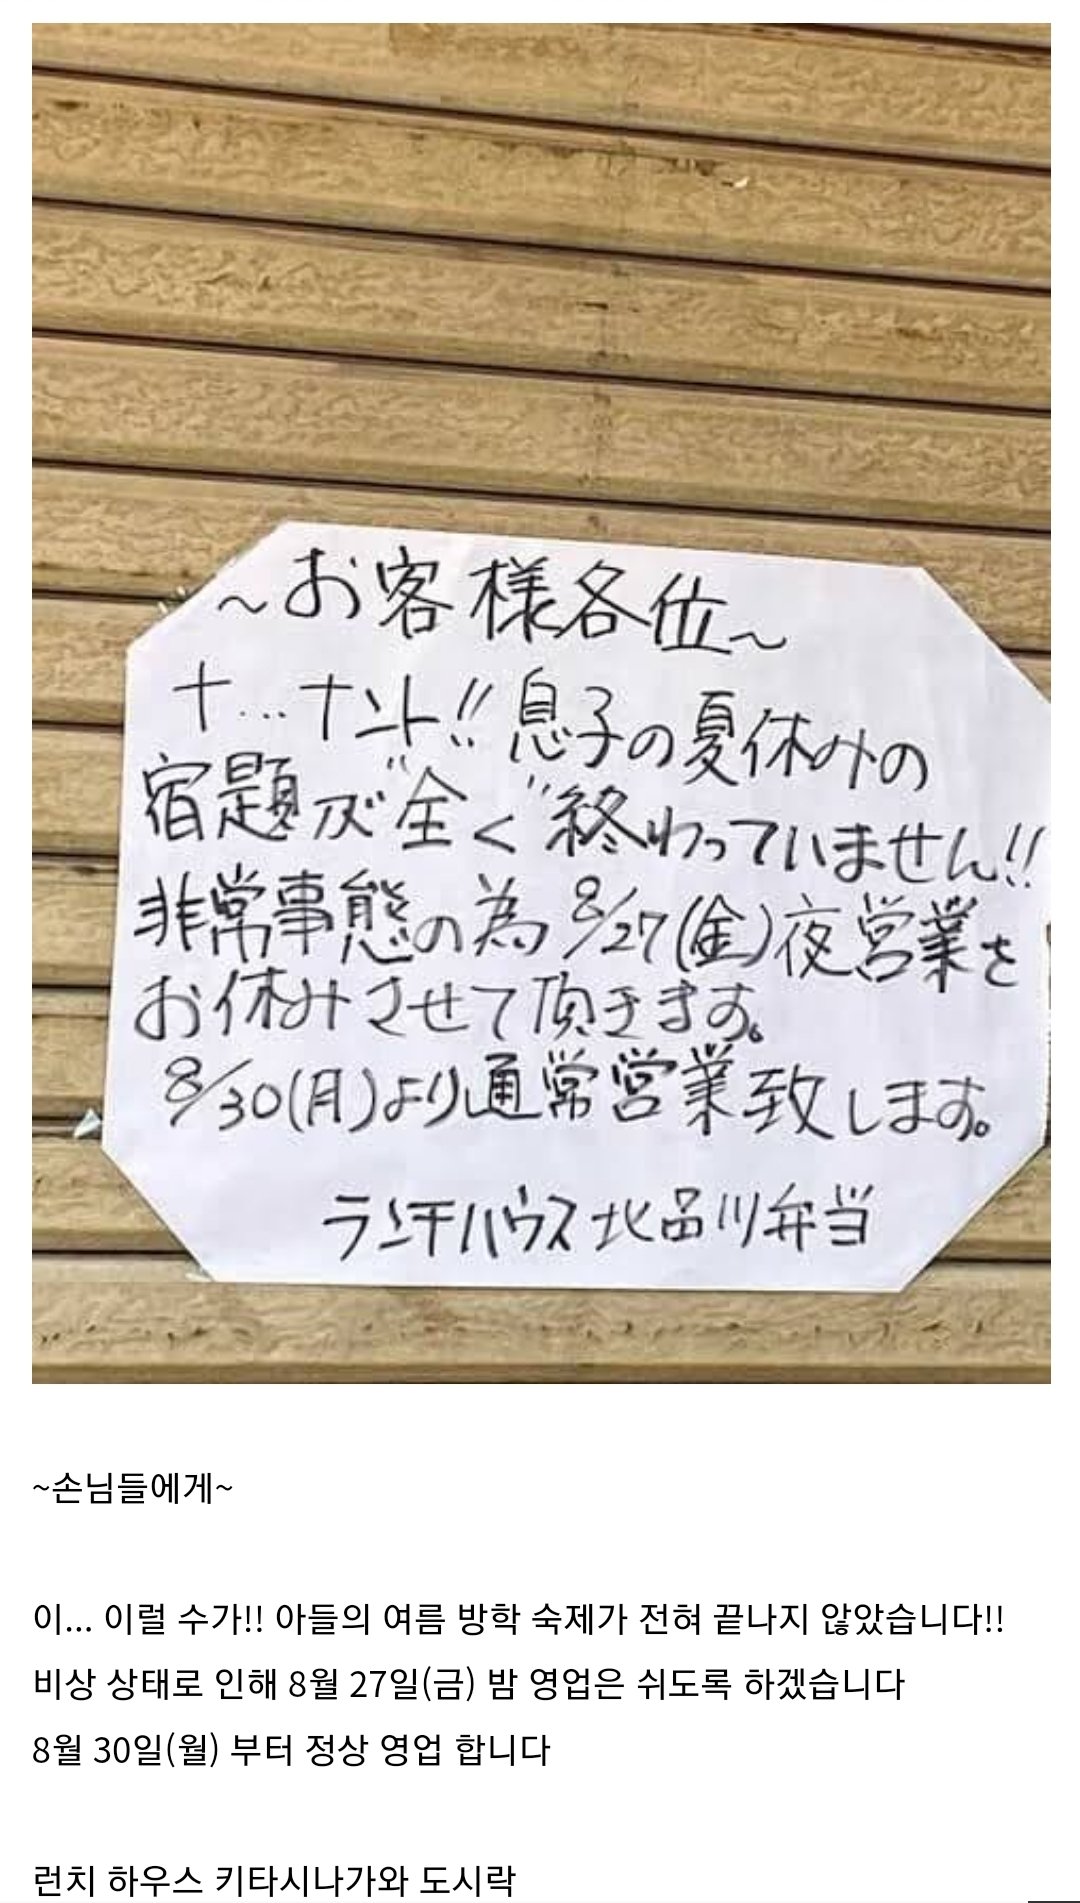 ~お客様各位~
ナ…ナント!!息子の夏休みの
宿題が"全く"終わっていません!!
非常事態の為8/27(金)夜営業を
お休みさせて頂きます。
8/30(月)より通常営業致します。
ランチハウス北品川弁当
~손님들에게~
이... 이럴 수가!! 아들의 여름 방학 숙제가 전혀 끝나지 않았습니다!!
비상 상태로 인해 8월 27일(금) 밤 영업은 쉬도록 하겠습니다
8월 30일(월) 부터 정상 영업 합니다
런치 하우스 키타시나가와 도시락